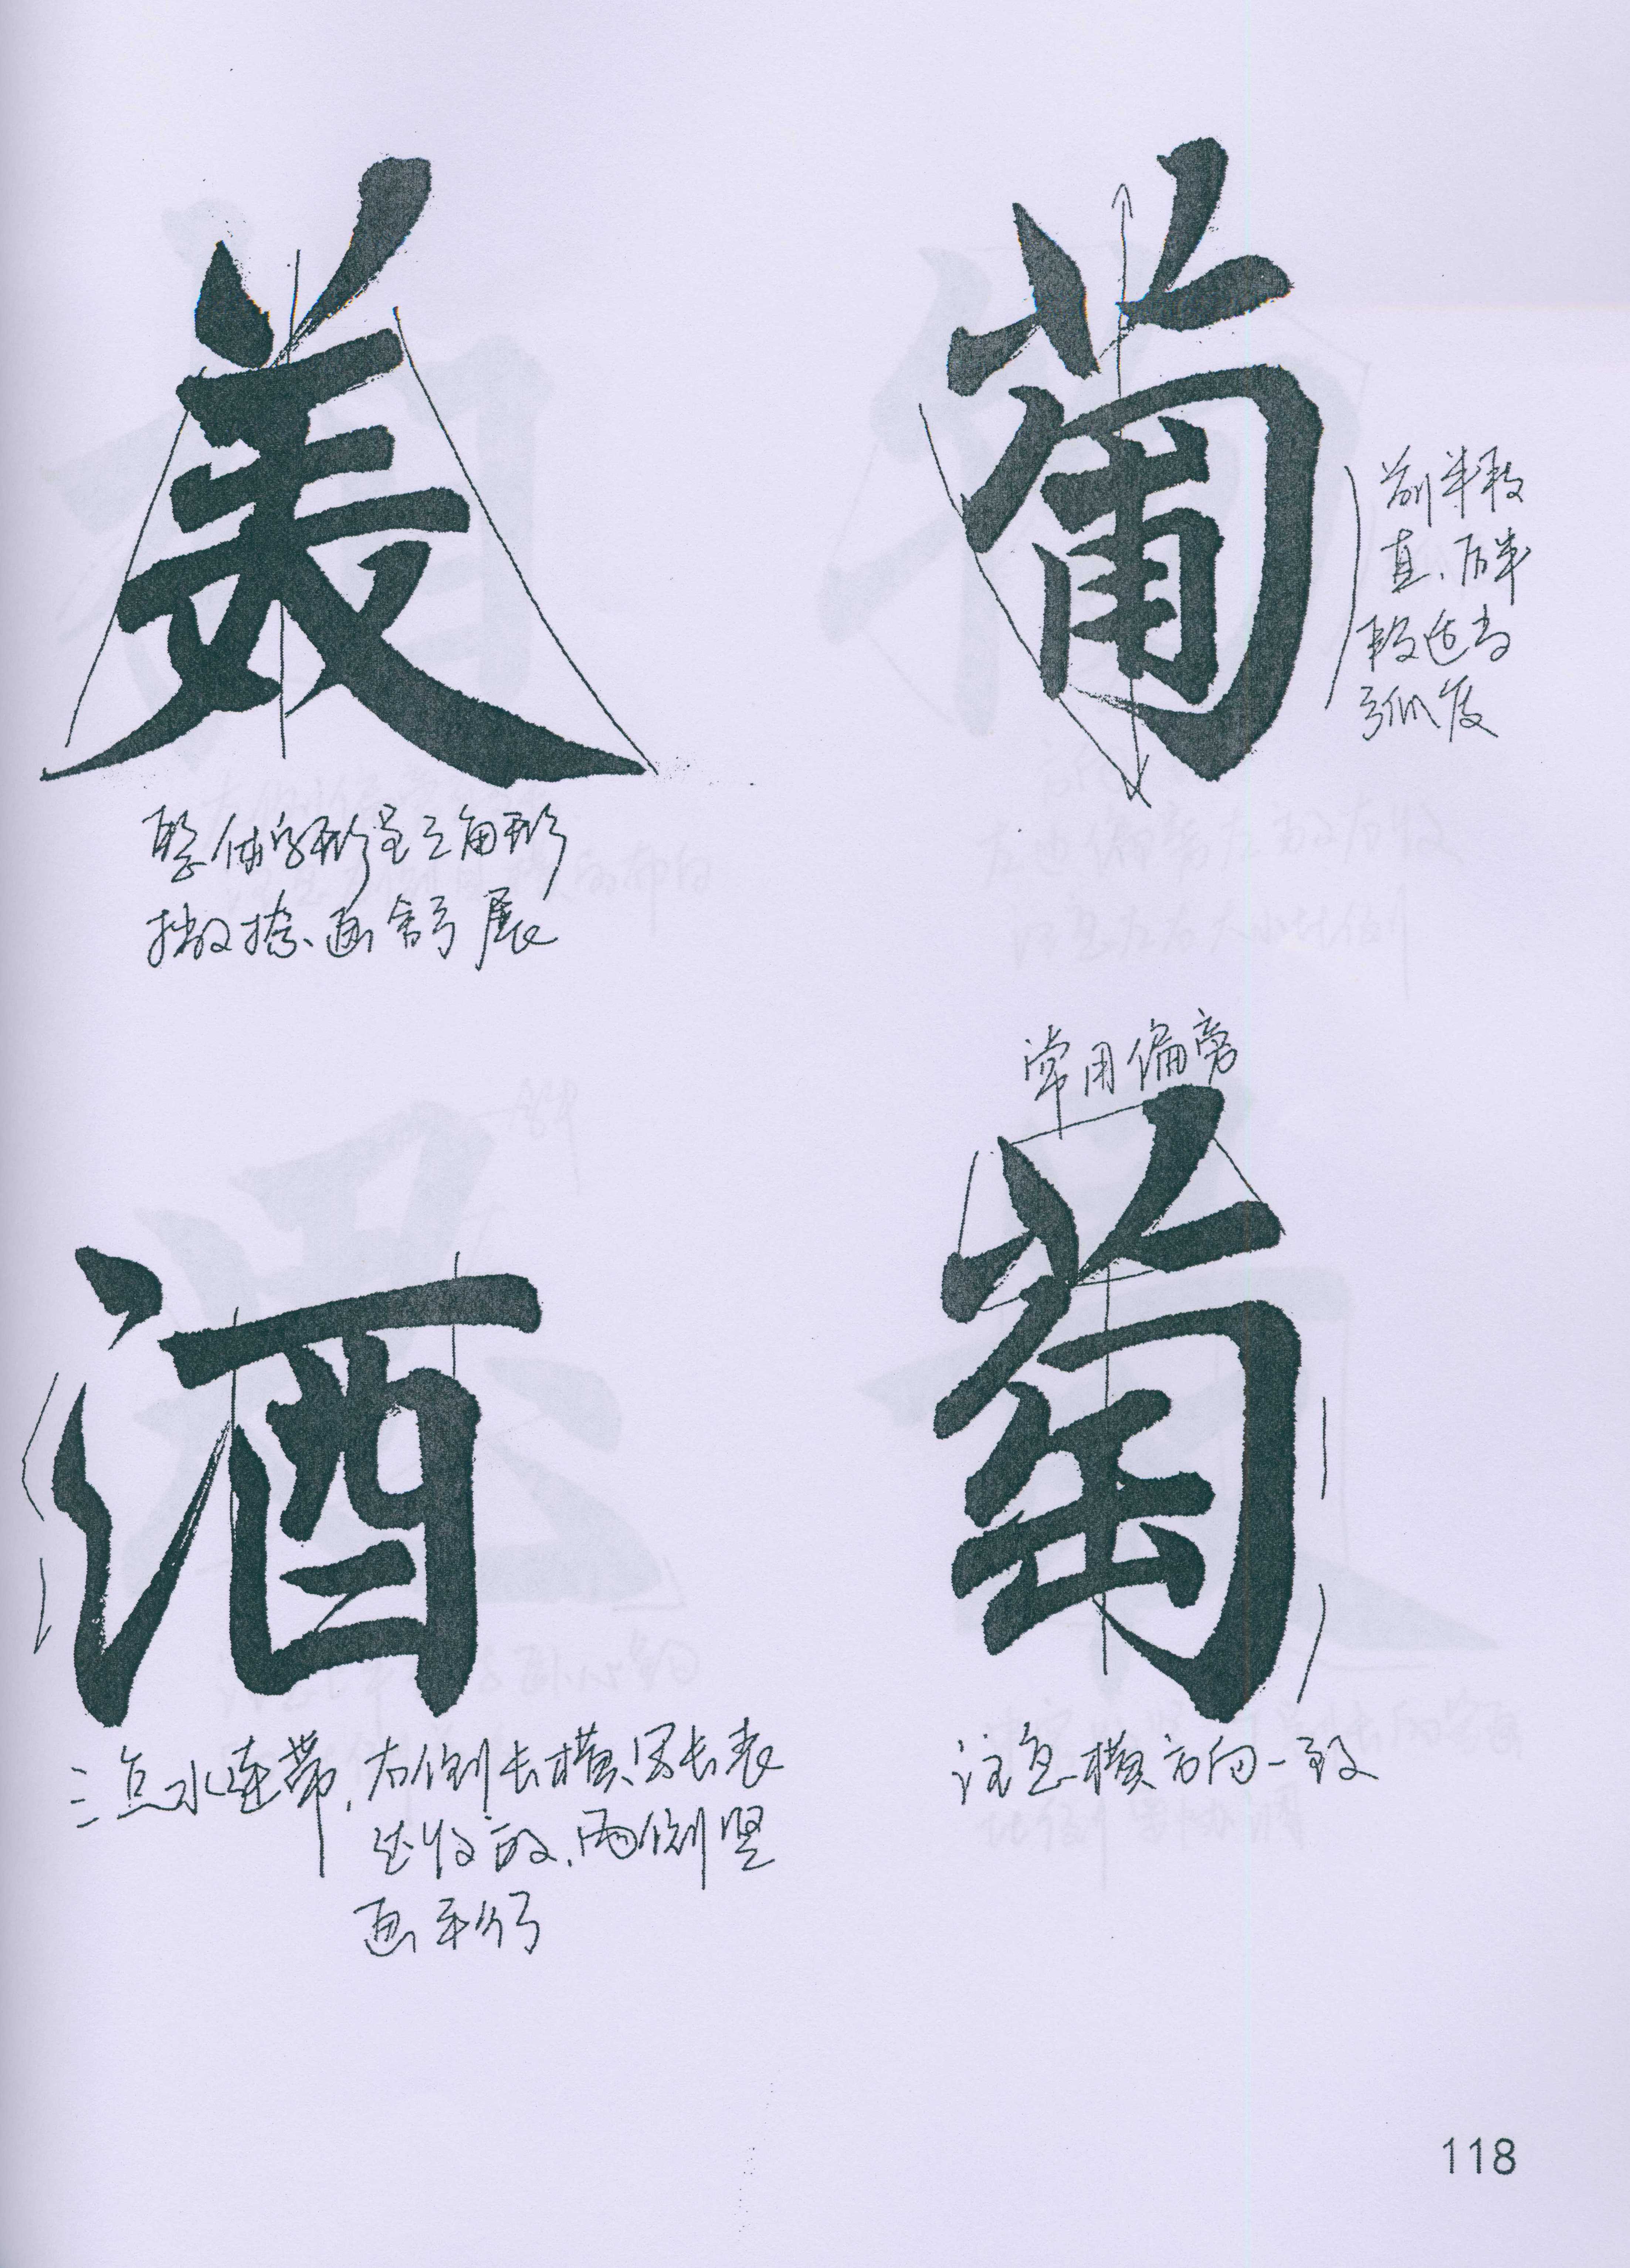 葡
前半段
直、后半
段适当
弧度
美
整体字形呈三角形
撇捺画舒展
常用偏旁
萄
注意横方向一致
酒
三点水连带,右侧长横、写长表
达收放,两侧竖
画平行
118